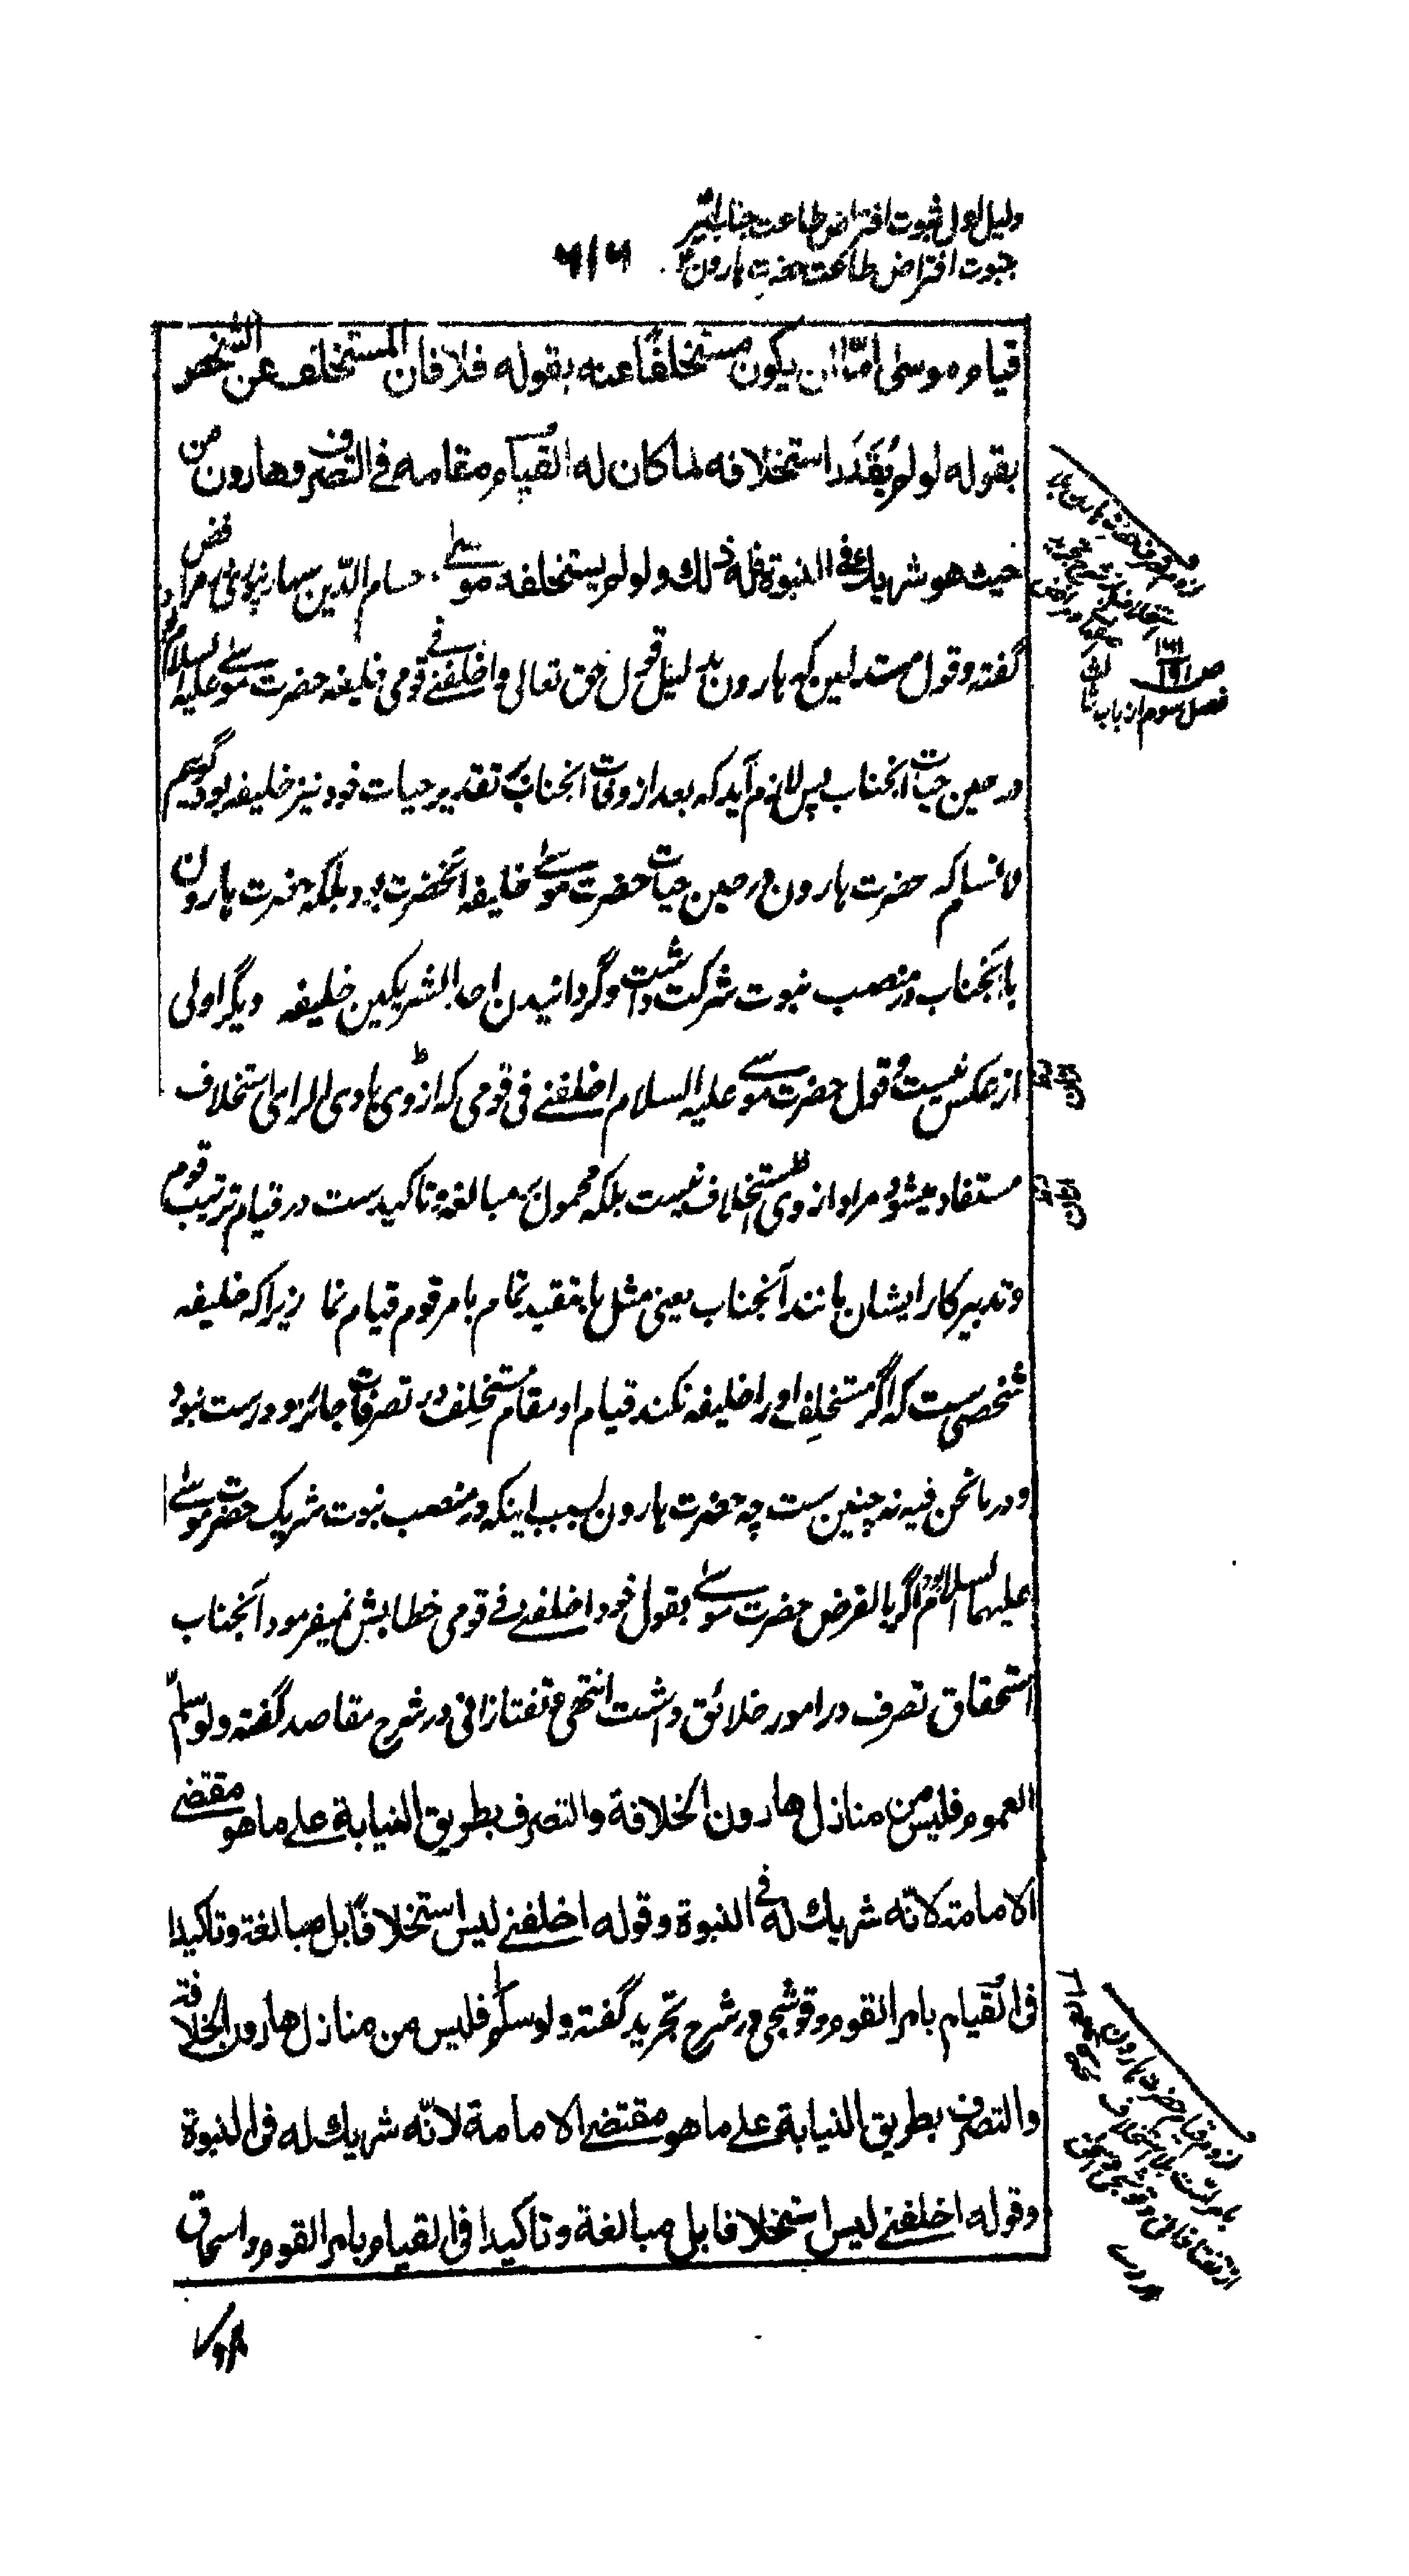 دلیل اول ثبوت افتراض طاعت جناب امیر
بثبوت افتراض طاعت حضرت هارون ۴
۶۱۶
قیام موسی امّا ان یکون مستخلفًا عنه بقوله فلا فان المستخلف عن الشخص
بقوله لو لم یُقَدَّر استخلافه لما کان له القیام مقامه فی التصرف و هارون من
حیث هو شریك له فی النبوة فله ذلك ولو لم یستخلفه موسیٰ. حسام الدّین سهارنپوری در مرافض
گفته و قول مستدلین که هارون بدلیل قول حق تعالی واخلفنے فے قومی خلیفه حضرت موسے علیه السلام بود
در حین حیات آنجناب پس لازم آید که بعد از وفات آنجناب بر تقدیر حیات خود نیز خلیفه بود گوییم
لا نسلم که حضرت هارون در حین حیات حضرت موسے خلیفه آنحضرت بود بلکه حضرت هارون
با آنجناب در منصب نبوت شرکت داشت و گردانیدن احد الشریکین خلیفه دیگر اولی
از عکس نیست و قول حضرت موسے علیه السلام اخلفنے فی قومی که از وی بادی الرای استخلاف
مستفاد میشود مراد از وی استخلاف نیست بلکه محمول بر مبالغه و تاکیدست در قیام ترتیب قوم
و تدبیر کار ایشان مانند آنجناب یعنی مثل ما بتقید تمام بامر قوم قیام نما زیراکه خلیفه
شخصی ست که اگر مستخلِف او را خلیفه نکند قیام او مقام مستخلِف در تصرفات جائز و درست نبود
و در ما نحن فیه نه چنین ست چه حضرت هارون بسبب اینکه در منصب نبوت شریک حضرت موسے
علیهما السلام بود اگر بالفرض حضرت موسے بقول خود اخلفنے فے قومی خطابش نمیفرمود آنجناب
استحقاق تصرف در امور خلائق داشت انتهی و تفتازانی در شرح مقاصد گفته ولو سلّم
العموم فلیس من منازل هارون الخلافة والتصرف بطریق النیابة علے ما هو مقتضے
الامامة لانّه شریك له فی النبوة وقوله اخلفنے لیس استخلافًا بل مبالغة وتاکیدا
فی القیام بامر القوم و قوشجی در شرح تجرید گفته ولو سلّم فلیس من منازل هارون الخلافة
والتصرف بطریق النیابة علے ما هو مقتضے الامامة لانّه شریك له فی النبوة
وقوله اخلفنے لیس استخلافا بل مبالغة وتاکیدا فی القیام بامر القوم و اسحاق
فصل سوم از باب